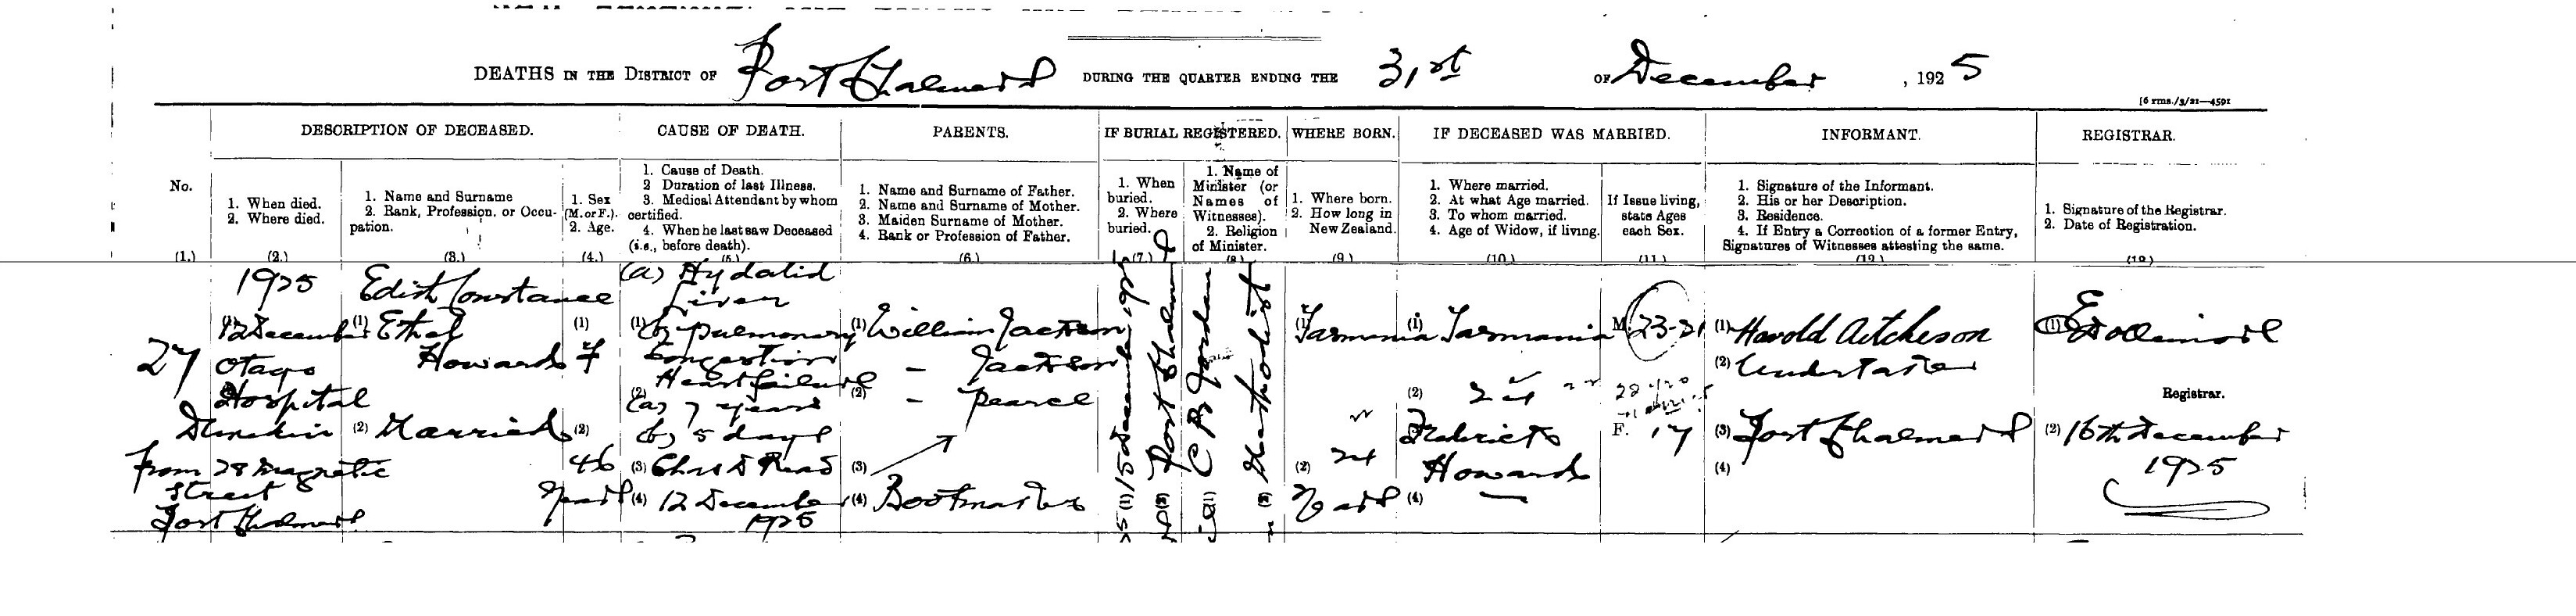 DEATHS IN THE DISTRICT OF Port Chalmers DURING THE QUARTER ENDING THE 31st OF December, 1925
[6 rms./3/21—4591
DESCRIPTION OF DECEASED.
CAUSE OF DEATH.
PARENTS.
IF BURIAL REGISTERED.
WHERE BORN.
IF DECEASED WAS MARRIED.
INFORMANT.
REGISTRAR.
No.
1. When died.
2. Where died.
1. Name and Surname
2. Rank, Profession, or Occu-
pation.
1. Sex
(M. or F.).
2. Age.
1. Cause of Death.
2 Duration of last Illness.
3. Medical Attendant by whom
certified.
4. When he last saw Deceased
(i.e., before death).
1. Name and Surname of Father.
2. Name and Surname of Mother.
3. Maiden Surname of Mother.
4. Rank or Profession of Father.
1. When
buried.
2. Where
buried.
1. Name of
Minister (or
Names of
Witnesses).
2. Religion
of Minister.
1. Where born.
2. How long in
New Zealand.
1. Where married.
2. At what Age married.
3. To whom married.
4. Age of Widow, if living.
If Issue living,
state Ages
each Sex.
1. Signature of the Informant.
2. His or her Description.
3. Residence.
4. If Entry a Correction of a former Entry,
Signatures of Witnesses attesting the same.
1. Signature of the Registrar.
2. Date of Registration.
(1.) (2.) (3.) (4.) (5.) (6.) (7.) (8.) (9.) (10.) (11.) (12.) (13.)
27
1925
(1) 12 December
Otago
Hospital
Dunedin
from 28 Magnetic
Street
Port Chalmers
Edith Constance
(1) Ethel
Howard
(2) Married
(1)
F
(2)
46
years
(a) Hydatid
Liver
(1) (b) pulmonary
Congestion
Heart failure
(2)
(a) 7 years
(b) 5 days
(3) Chas A Read
(4) 12 December
1925
(1) William Jackson
— Jackson
(2) — Pearce
(3)
(4) Bootmaker
(1) 15 December 1925
(2) Port Chalmers
(1) C B Jordan
(2) Methodist
(1) Tasmania
(2) 24
years
(1) Tasmania
(2) 22
Frederick
Howard
(4) —
M. 23-21
F. 17
(1) Harold Aitcheson
(2) Undertaker
(3) Port Chalmers
(4)
(1)
Registrar.
(2) 16th December
1925